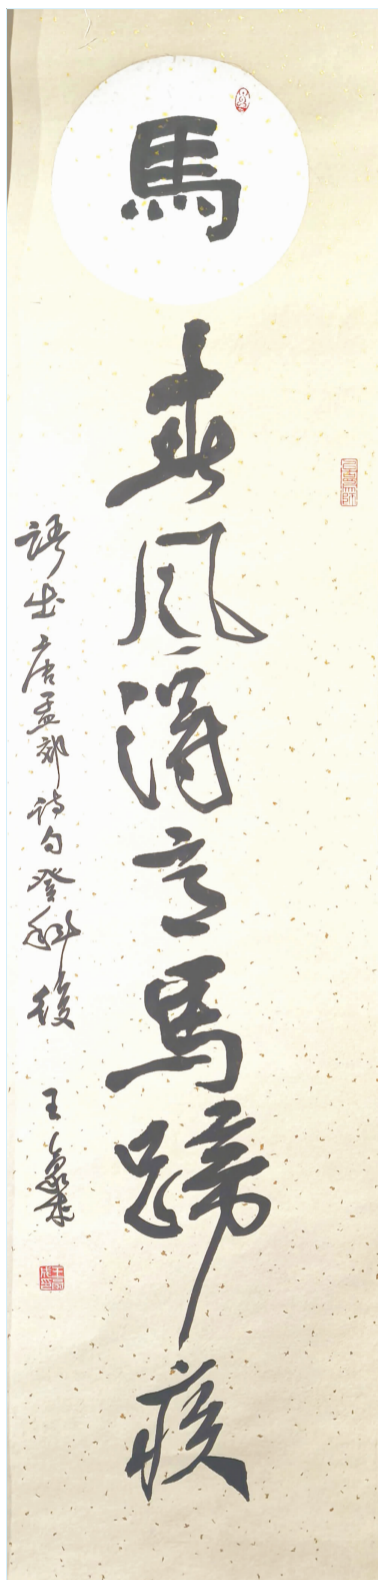 馬
春風得意馬蹄疾
語出唐孟郊詩句登科後
王